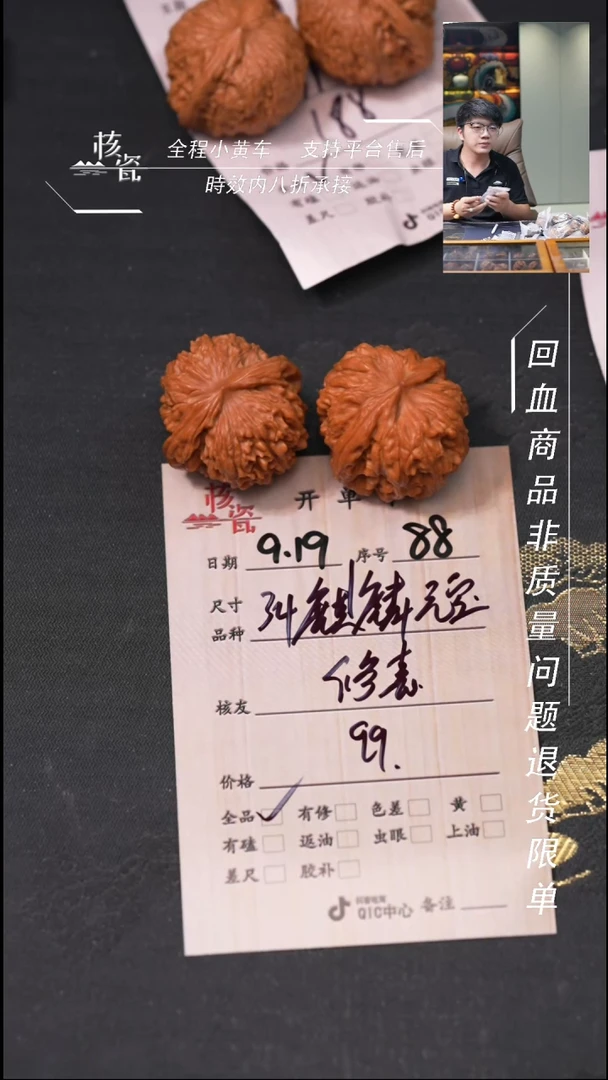 188
核瓷
全程小黄车 支持平台售后
時效内八折承接
有磕
差尺
回血商品非质量问题退货限单
核瓷 开单
日期 9.19 序号 88
尺寸
品种 麒麟元宝
核友 修嘉
价格 99.
全品 有修 色差 黄
有磕 返油 虫眼 上油
差尺 胶补
抖音电商
QIC中心 备注